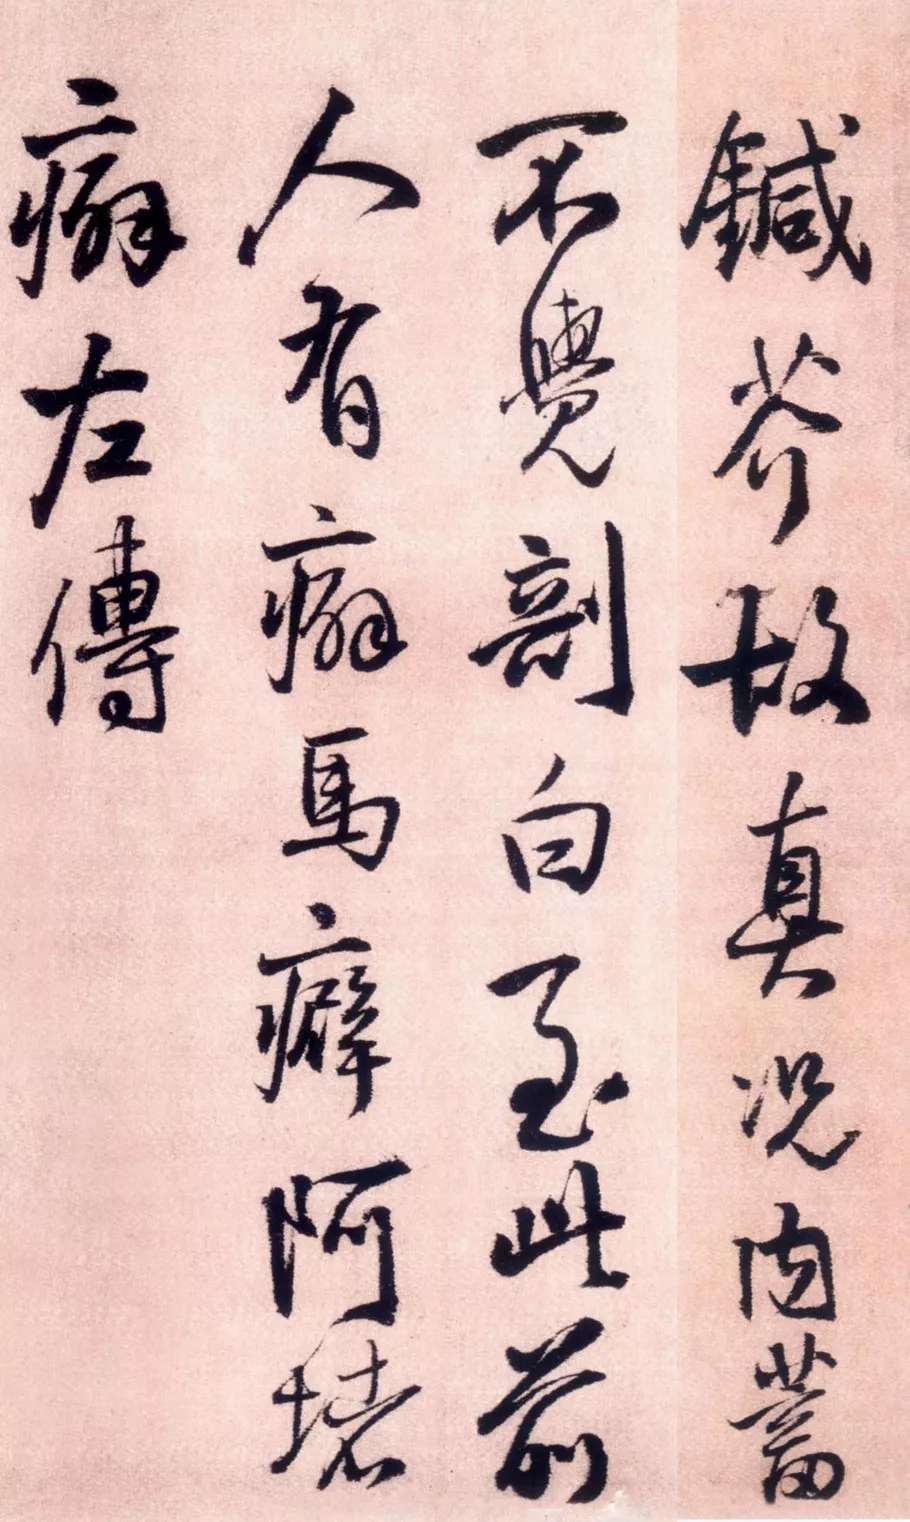 鍼芥故真況内蓄
不覺剖白至此前
人有癖馬癖阿堵
癖左傳